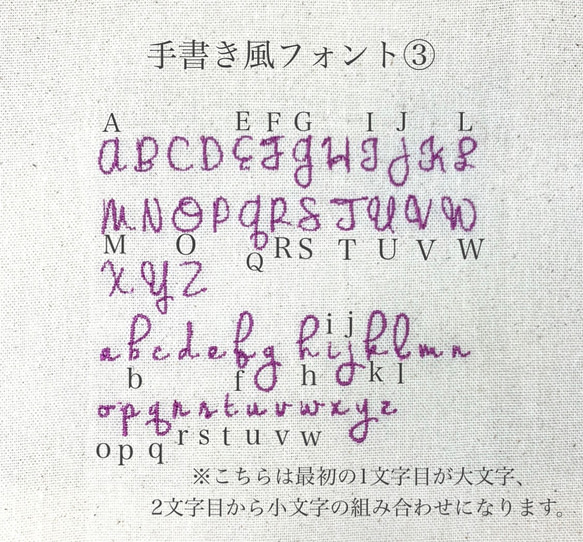 手書き風フォント③
A E F G I J L
a B C D E F G H I J K L
M N O P Q R S T U V W
M O Q R S T U V W
X Y Z
i j
a b c d e f g h i j k l m n
b f h k l
o p q r s t u v w x y z
o p q r s t u v w
※こちらは最初の1文字目が大文字、
2文字目から小文字の組み合わせになります。